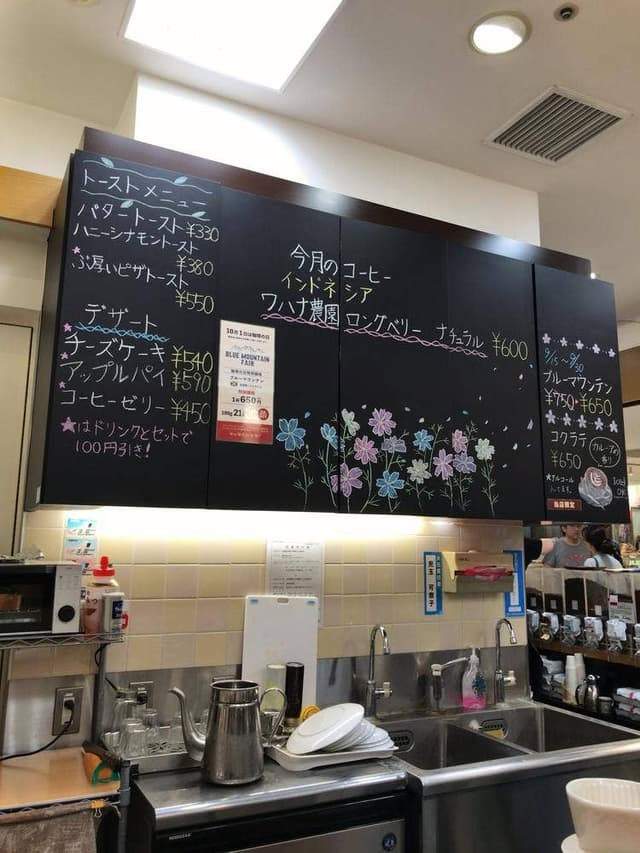 トーストメニュー
バタートースト ¥330
ハニーシナモントースト
¥380
ぶ厚いピザトースト
¥550
デザート
チーズケーキ ¥540
アップルパイ ¥590
コーヒーゼリー ¥450
★はドリンクとセットで
100円引き!
10月1日は珈琲の日
BLUE MOUNTAIN
FAIR
ブルーマウンテン
1杯650円
今月のコーヒー
インドネシア
ワハナ農園 ロングベリー ナチュラル ¥600
9/15〜9/30
ブルーマウンテン
¥750→¥650
コクラテ
¥650